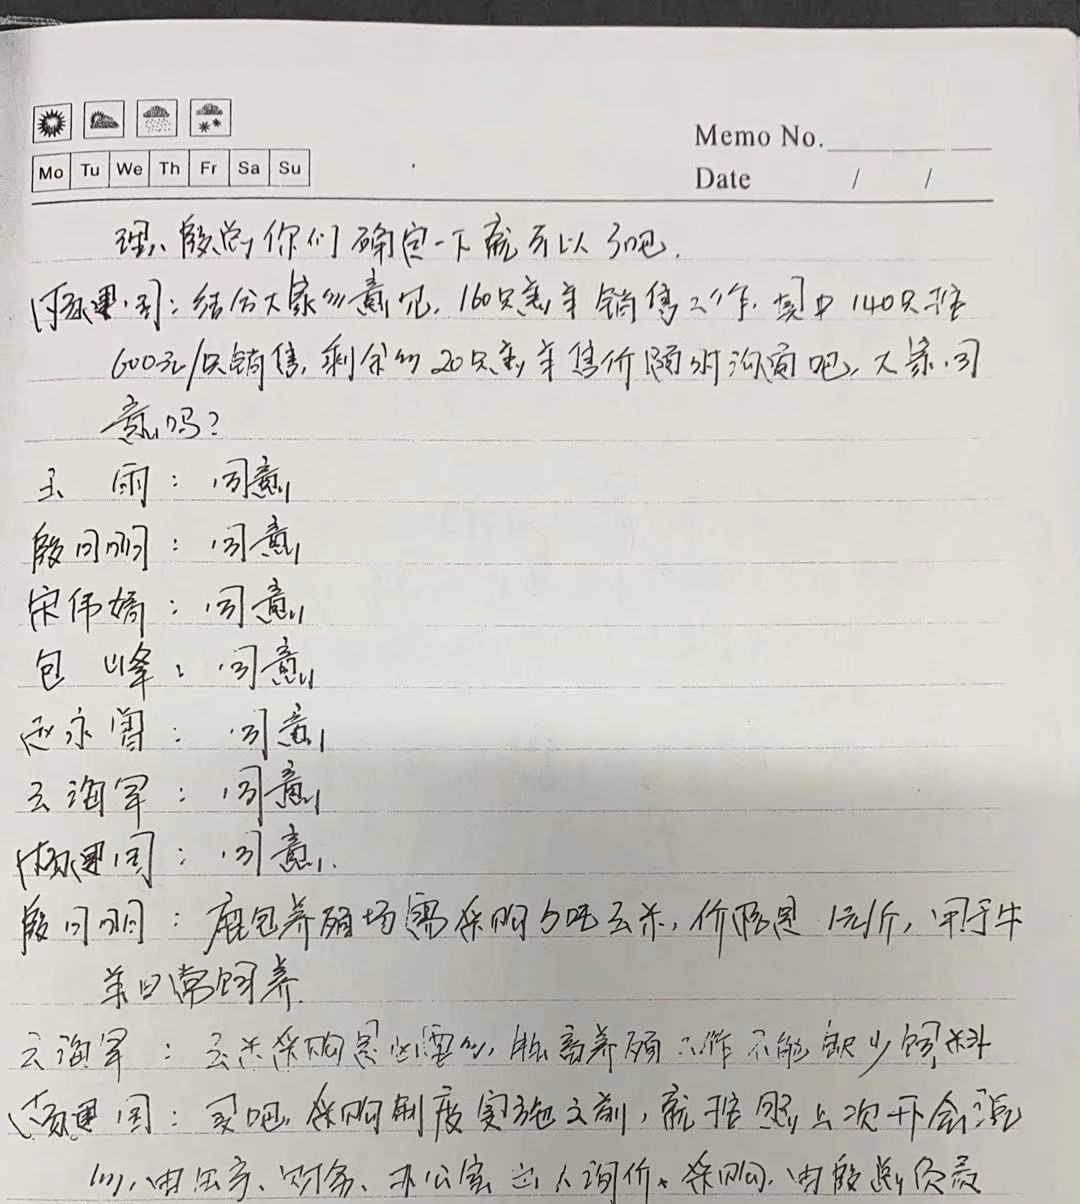 Mo Tu We Th Fr Sa Su
Memo No.
Date / /
理、殷总你们确定一下就可以了吧.
建国:结合大家的意见,160只羔羊销售工作,其中140只按
600元/只销售,剩余的20只羔羊售价随时沟通吧,大家同
意吗?
王雨:同意
殷日明:同意
宋伟娇:同意
包峰:同意
赵永胃:同意
云海军:同意
建国:同意.
殷日明:鹿包养殖场需采购5吨玉米,价格是1元/斤,用于牛
羊日常饲养.
云海军:玉米采购是必要的,牲畜养殖工作不能缺少饲料
建国:买吧,采购制度实施之前,就按照上次开会说
的,由生产、财务、办公室三人询价、采购,由殷总负责